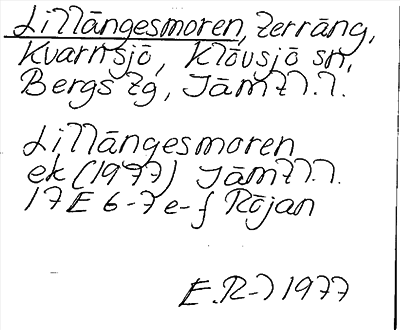 Lillängesmoren, terräng,
Kvarnsjö, Klövsjö sn,
Bergs tg, Jämtl.
Lillängesmoren
ek (1977) Jämtl.
17E 6-7 e-f Röjan
E.R-n 1977